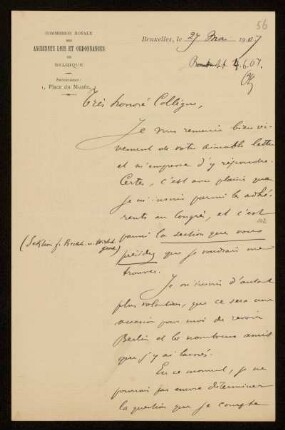 56
COMMISSION ROYALE
DES
ANCIENNES LOIS ET ORDONNANCES
DE
BELGIQUE
1, PLACE DU MUSÉE
Bruxelles, le 27 Mai 1907
4.6.07.
Très honoré Collègue,
Je vous remercie bien vi-
vement de votre aimable lettre
et m'empresse d'y répondre.
Certes, c'est avec plaisir que
je m'inscris parmi les adhé-
rents au Congrès, et c'est
parmi la section que vous
présidez que je voudrais me
trouver.
Je m'inscris d'autant
plus volontiers, que ce sera une
occasion pour moi de revoir
Berlin et les nombreux amis
que j'y ai laissés.
En ce moment, je ne
pourrais pas encore déterminer
la question que je compte